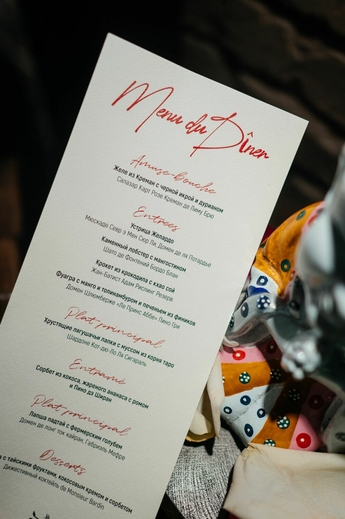 Menu du Dîner
Amuse-bouche
Желе из Креман с черной икрой и дурианом
Салазар Карт Розе Креман де Лиму Брю
Entrées
Устрица Желардо
Мюскаде Севр э Мен Сюр Ли, Домен де ла Полардьё
Каменный лобстер с мангостином
Шато де Фонтений Бордо Блан
Крокет из крокодила с као сой
Жан-Батист Адам Рислинг Резерв
Фуагра с манго и топинамбуром и печеньем из фиников
Домен Шлюмберже «Ле Принс Аббе» Пино Гри
Plat principal
Хрустящие лягушачьи лапки с муссом из корня таро
Шардоне Кот дю Ло Ла Сигараль
Entrami
Сорбет из кокоса, жареного ананаса с ромом
и Пино дэ Шаран
Plat principal
Лапша падтай с фермерским голубем
Домен де лонг ток кайран, Габриэль Мефре
Desserts
с тайскими фруктами, кокосовым кремом и сорбетом
Дижестивный коктейль de Monsieur Bardin